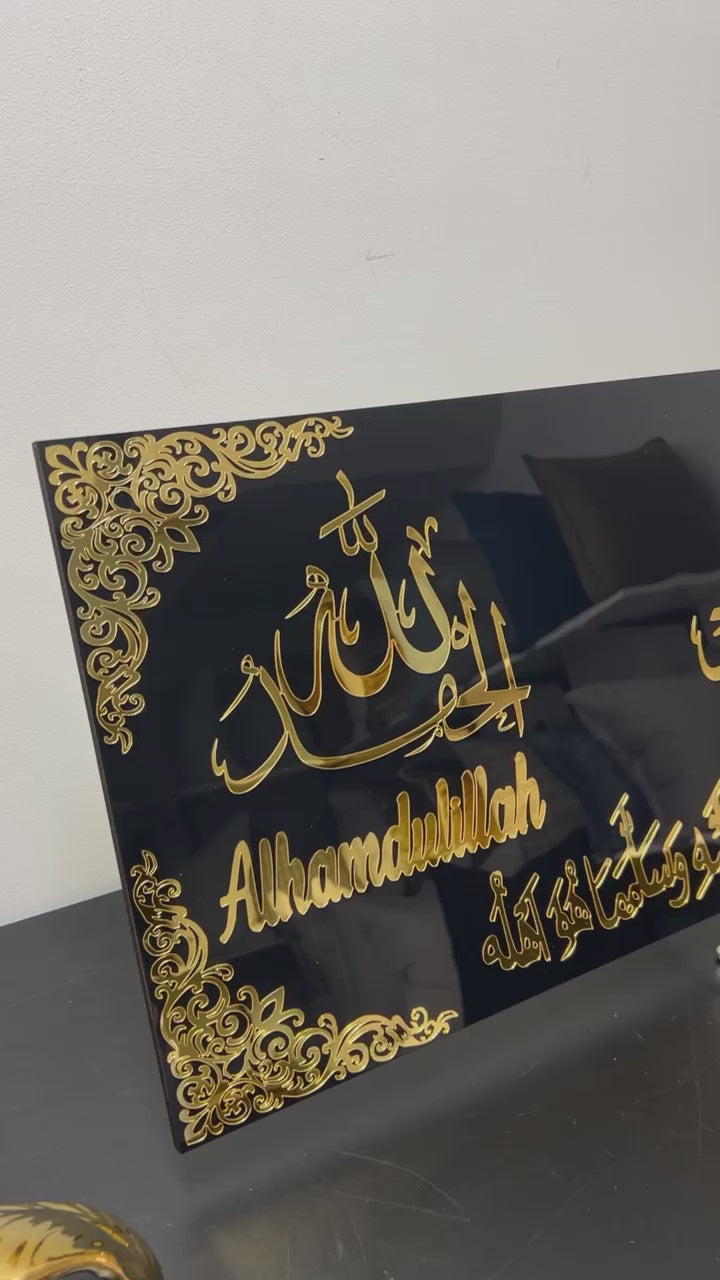 الحمد لله
Alhamdulillah
وسلم كما هو اهله